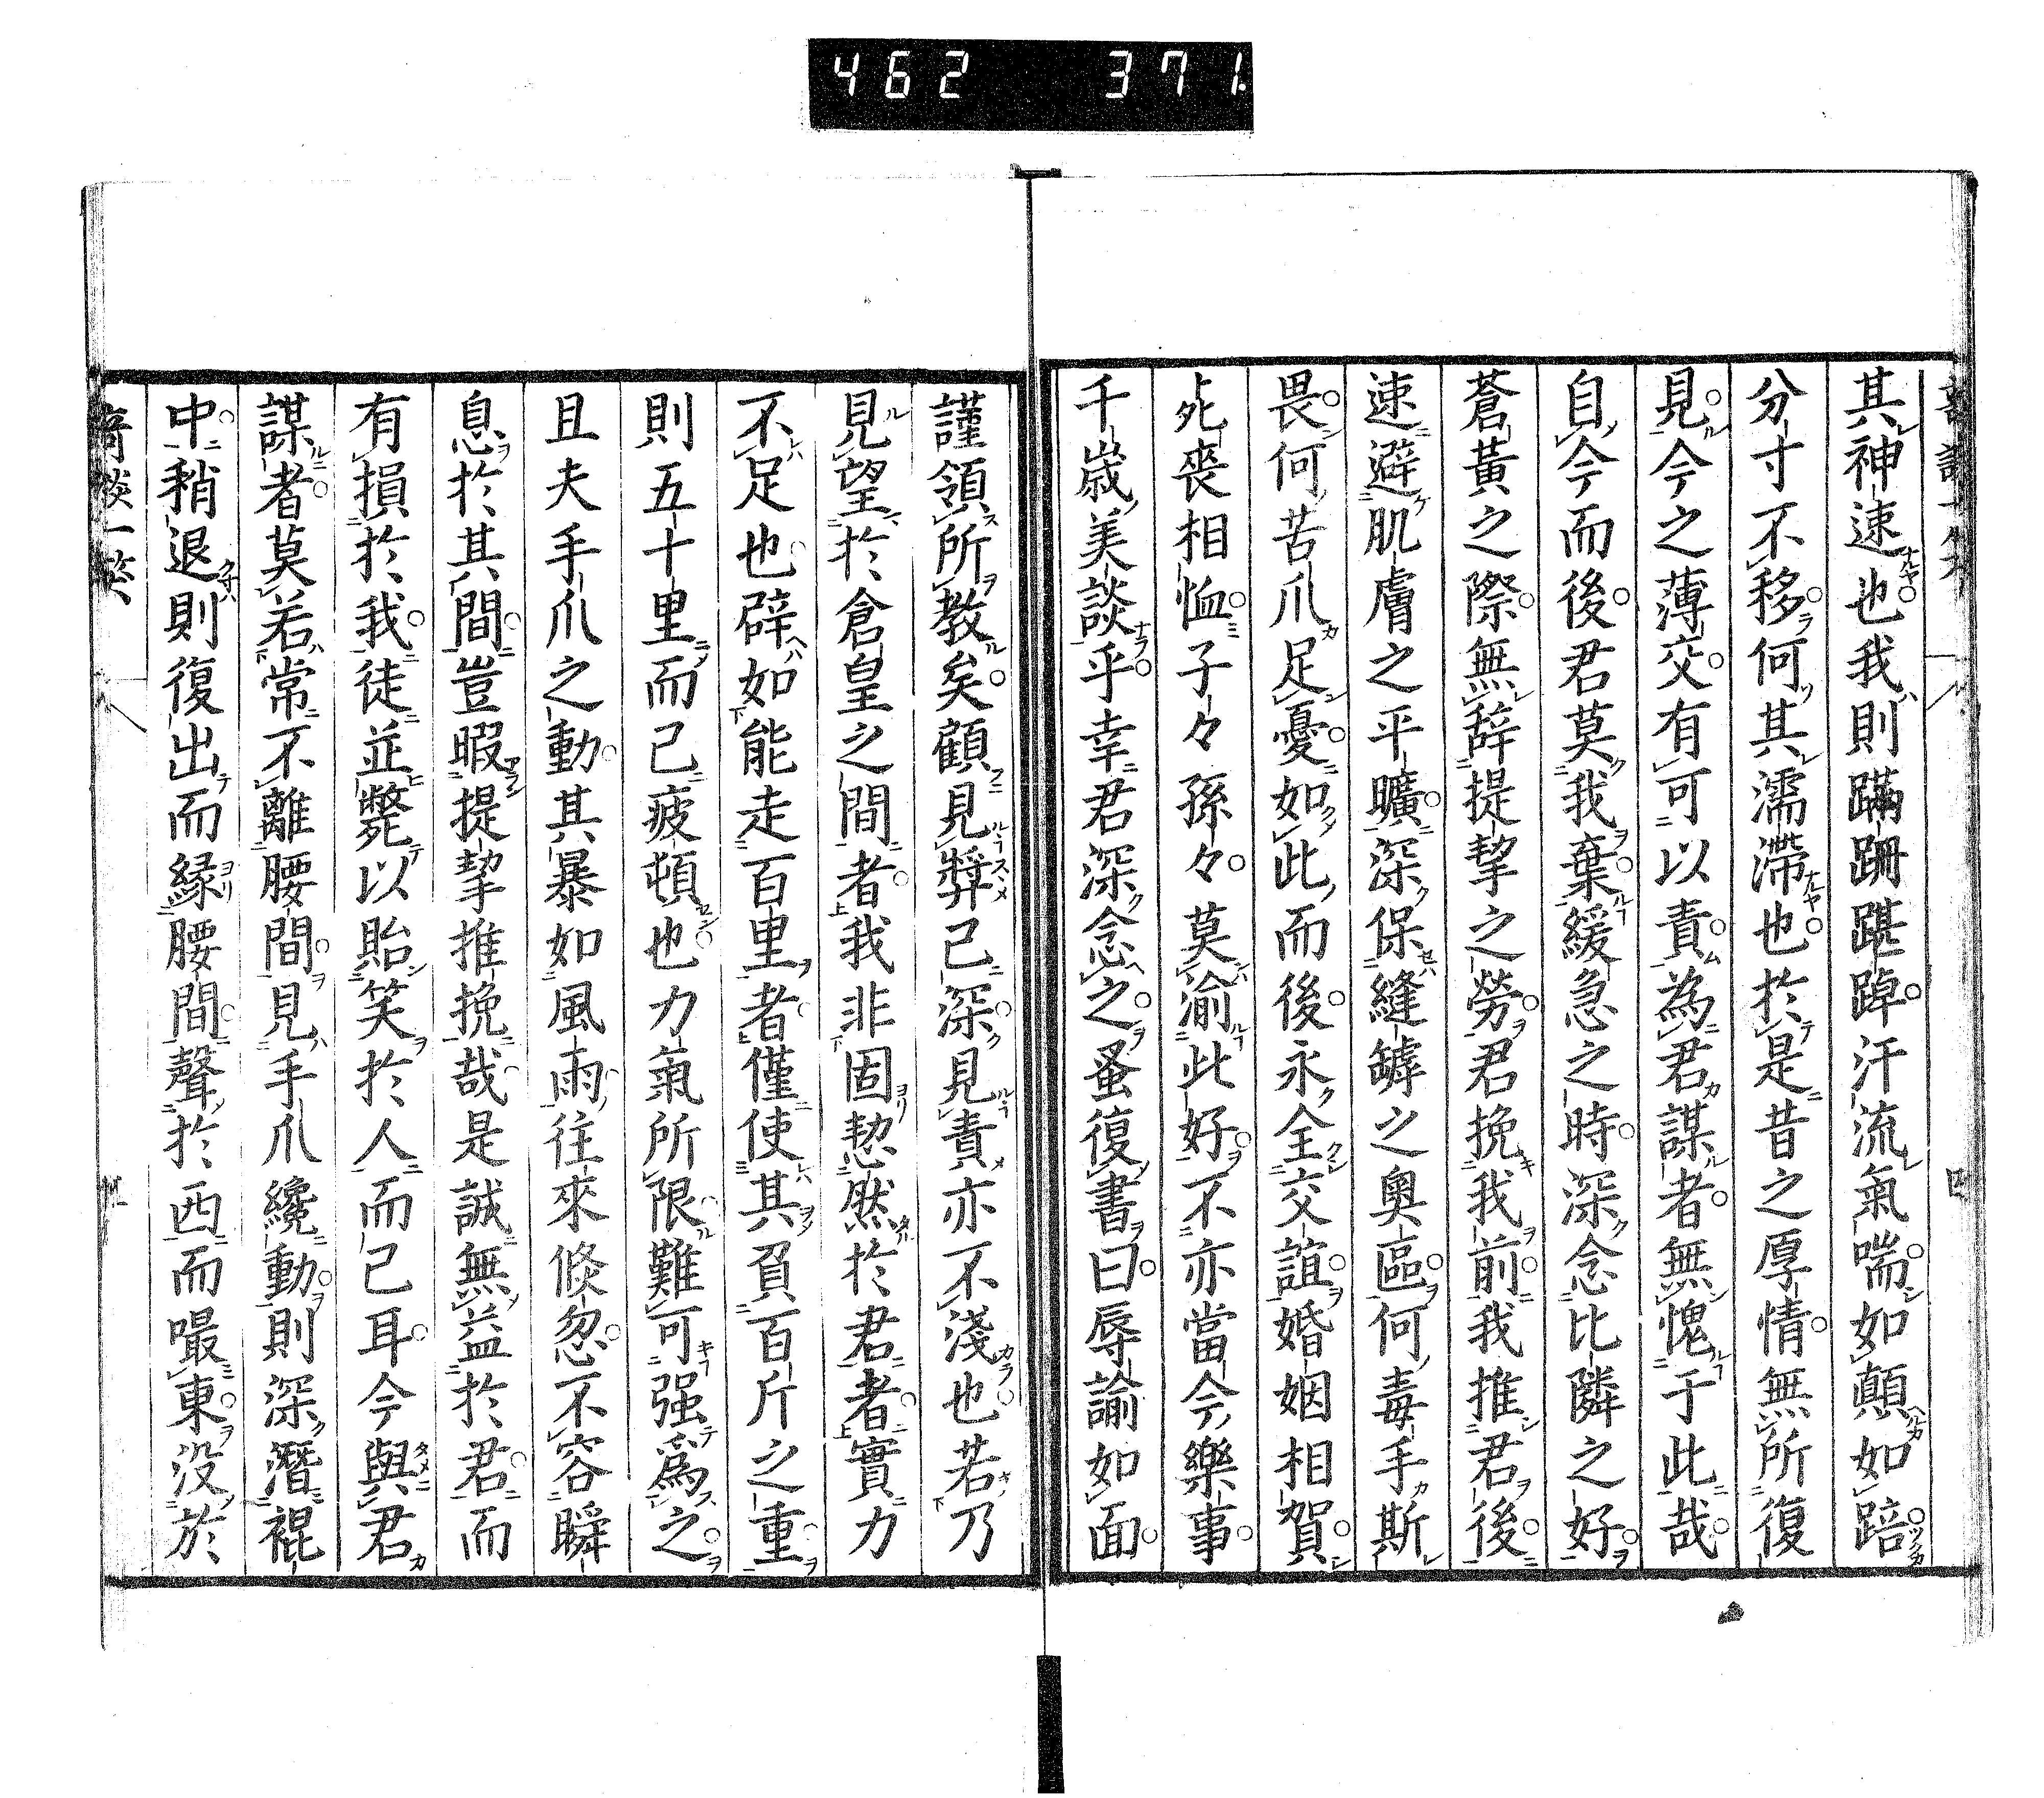 462 371.
其神速也我則蹣跚踸踔汗流氣喘如顛如踣
分寸不移何其濡滯也於是昔之厚情無所復
見今之薄交有可以責為君謀者無愧于此哉
自今而後君莫我棄緩急之時深念比隣之好
蒼黃之際無辞提挈之勞君挽我前我推君後
速避肌膚之平曠深保縫罅之奧區何毒手斯
畏何苦爪足憂如此而後永全交誼婚姻相賀
死喪相恤子々孫々莫渝此好不亦當今樂事
千歲美談乎幸君深念之蚤復書曰辱諭如面
謹領所教矣顧見奬已深見責亦不淺也若乃
見望於倉皇之間者我非固愸然於君者實力
不足也辟如能走百里者僅使其負百斤之重
則五十里而已疲頓也力氣所限難可强爲之
且夫手爪之動其暴如風雨往來倐忽不容瞬
息於其間豈暇提挈推挽哉是誠無益於君而
有損於我徒並斃以貽笑於人而已耳今與君
謀者莫若常不離腰間見手爪纔動則深潛裩
中稍退則復出而緣腰間聲於西而嘬東没於
奇談一笑